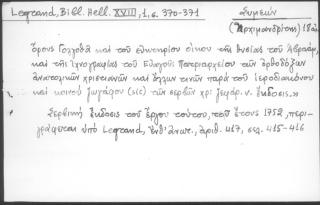 Legrand, Bibl. Hell. XVIII, 1, σ. 370-371
Συμεών
(Ἀρχιμανδρίτης) 18 αἰ.
Ὄρους Γολγοθᾶ καὶ τοῦ εὐκτηρίου οἴκου τῆς θυσίας τοῦ Ἀβραάμ,
καὶ τῆς ἰχνογραφίας τοῦ ὅλου Πατριαρχείου τῶν ὀρθοδόξων
ἀνατολικῶν χριστιανῶν καὶ ἄλλων τινῶν παρὰ τοῦ ἱεροδιακόνου
καὶ κοινοῦ ζωγάφου (sic) τῶν σερβῶν χρ. ζεφάρ. ν. ἔκδοσις.»
Σερβικὴ ἔκδοσις τοῦ ἔργου τούτου, τοῦ ἔτους 1752, περι-
γράφεται ὑπὸ Legrand, ἔνθ' ἀνωτ., ἀριθ. 417, σελ. 415-416